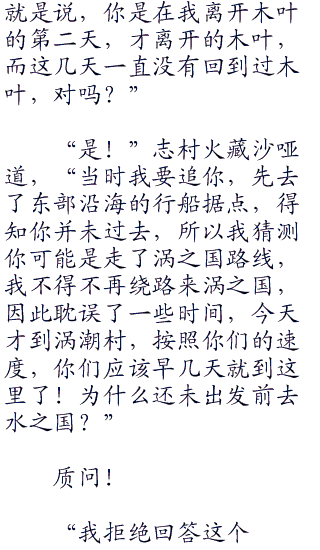 就是说，你是在我离开木叶
的第二天，才离开的木叶，
而这几天一直没有回到过木
叶，对吗？”
“是！”志村火藏沙哑
道，“当时我要追你，先去
了东部沿海的行船据点，得
知你并未过去，所以我猜测
你可能是走了涡之国路线，
我不得不再绕路来涡之国，
因此耽误了一些时间，今天
才到涡潮村，按照你们的速
度，你们应该早几天就到这
里了！为什么还未出发前去
水之国？”
质问！
“我拒绝回答这个